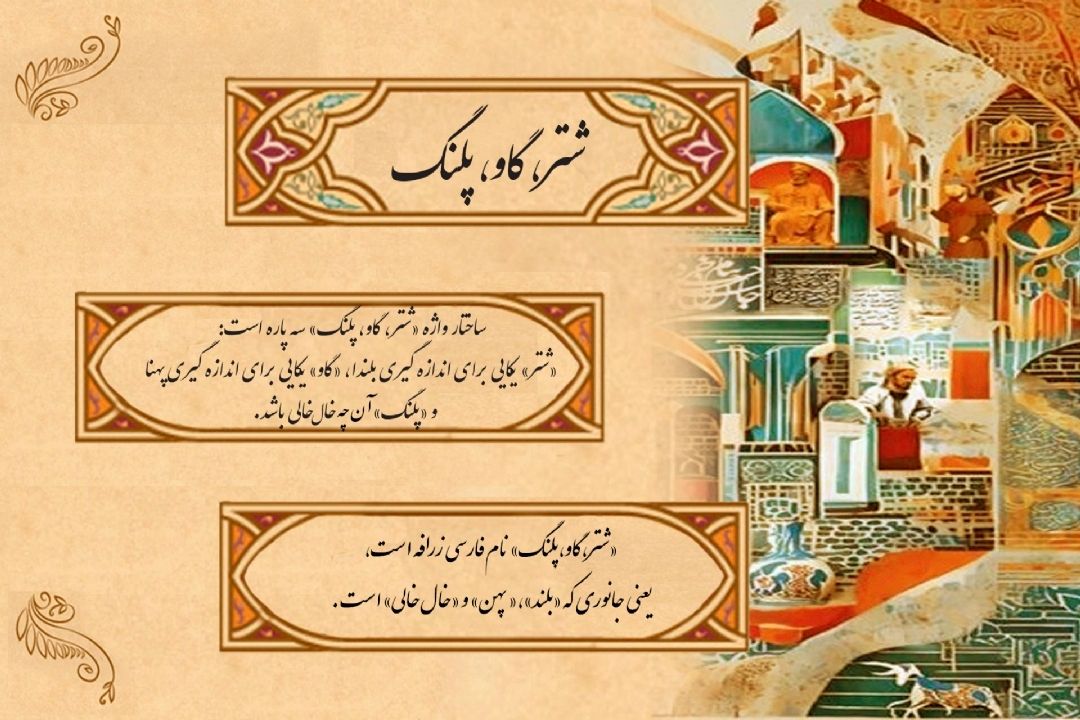 شتر، گاو، پلنگ
ساختار واژه «شتر، گاو، پلنگ» سه پاره است:
«شتر» یکایی برای اندازه گیری بلندا، «گاو» یکایی برای اندازه گیری پهنا
و «پلنگ» آن چه خال خالی باشد.
«شتر، گاو، پلنگ» نام فارسی زرافه است،
یعنی جانوری که «بلند»، «پهن» و «خال خالی» است.